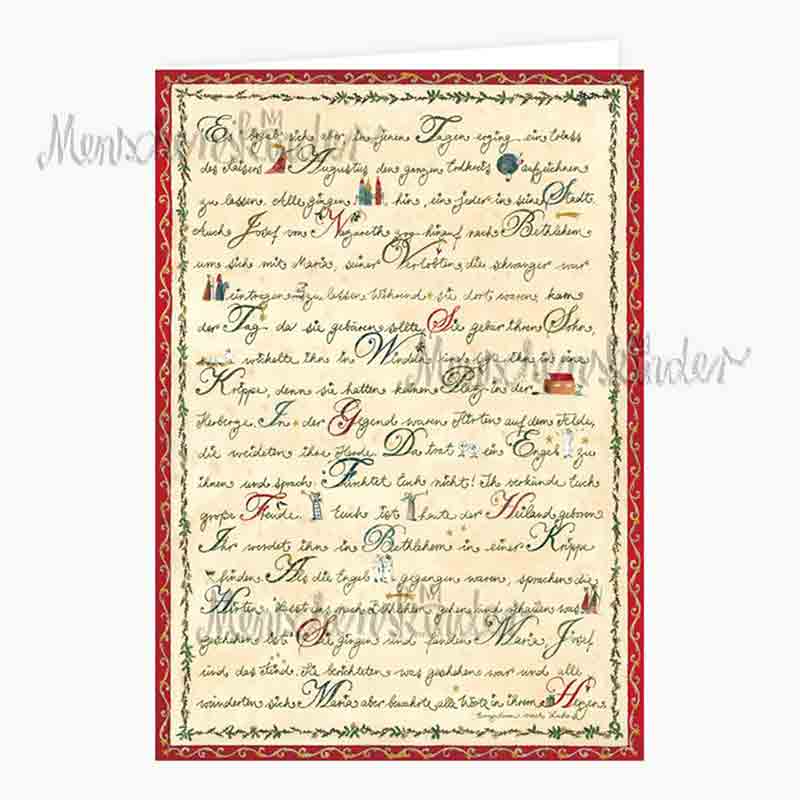 Menschenskinder
Es begab sich aber in jenen Tagen erging ein Erlass
des Kaisers Augustus den ganzen Erdkreis aufzeichnen
zu lassen. Alle gingen hin, ein jeder in seine Stadt.
Auch Josef von Nazareth zog hinauf nach Bethlehem
um sich mit Maria, seiner Verlobten, die schwanger war
eintragen zu lassen. Während sie dort waren, kam
der Tag da sie gebären sollte. Sie gebar ihren Sohn,
wickelte ihn in Windeln ihn in eine
Menschenskinder
Krippe, denn sie hatten keinen Platz in der
Herberge. In der Gegend waren Hirten auf dem Felde,
die weideten ihre Herde. Da trat ein Engel zu
ihnen und sprach: Fürchtet Euch nicht! Ich verkünde Euch
große Freude. Euch ist heute der Heiland geboren
Ihr werdet ihn in Bethlehem in einer Krippe
finden. Als die Engel gegangen waren, sprachen die
Hirten: Lasst uns nach Bethlehem gehen und schauen was
Menschenskinder
geschehen ist. Sie gingen und fanden Maria, Josef
und das Kind. Sie berichteten was geschehen war und alle
wunderten sich Maria aber bewahrte alle Worte in ihrem Herzen
nach Lukas